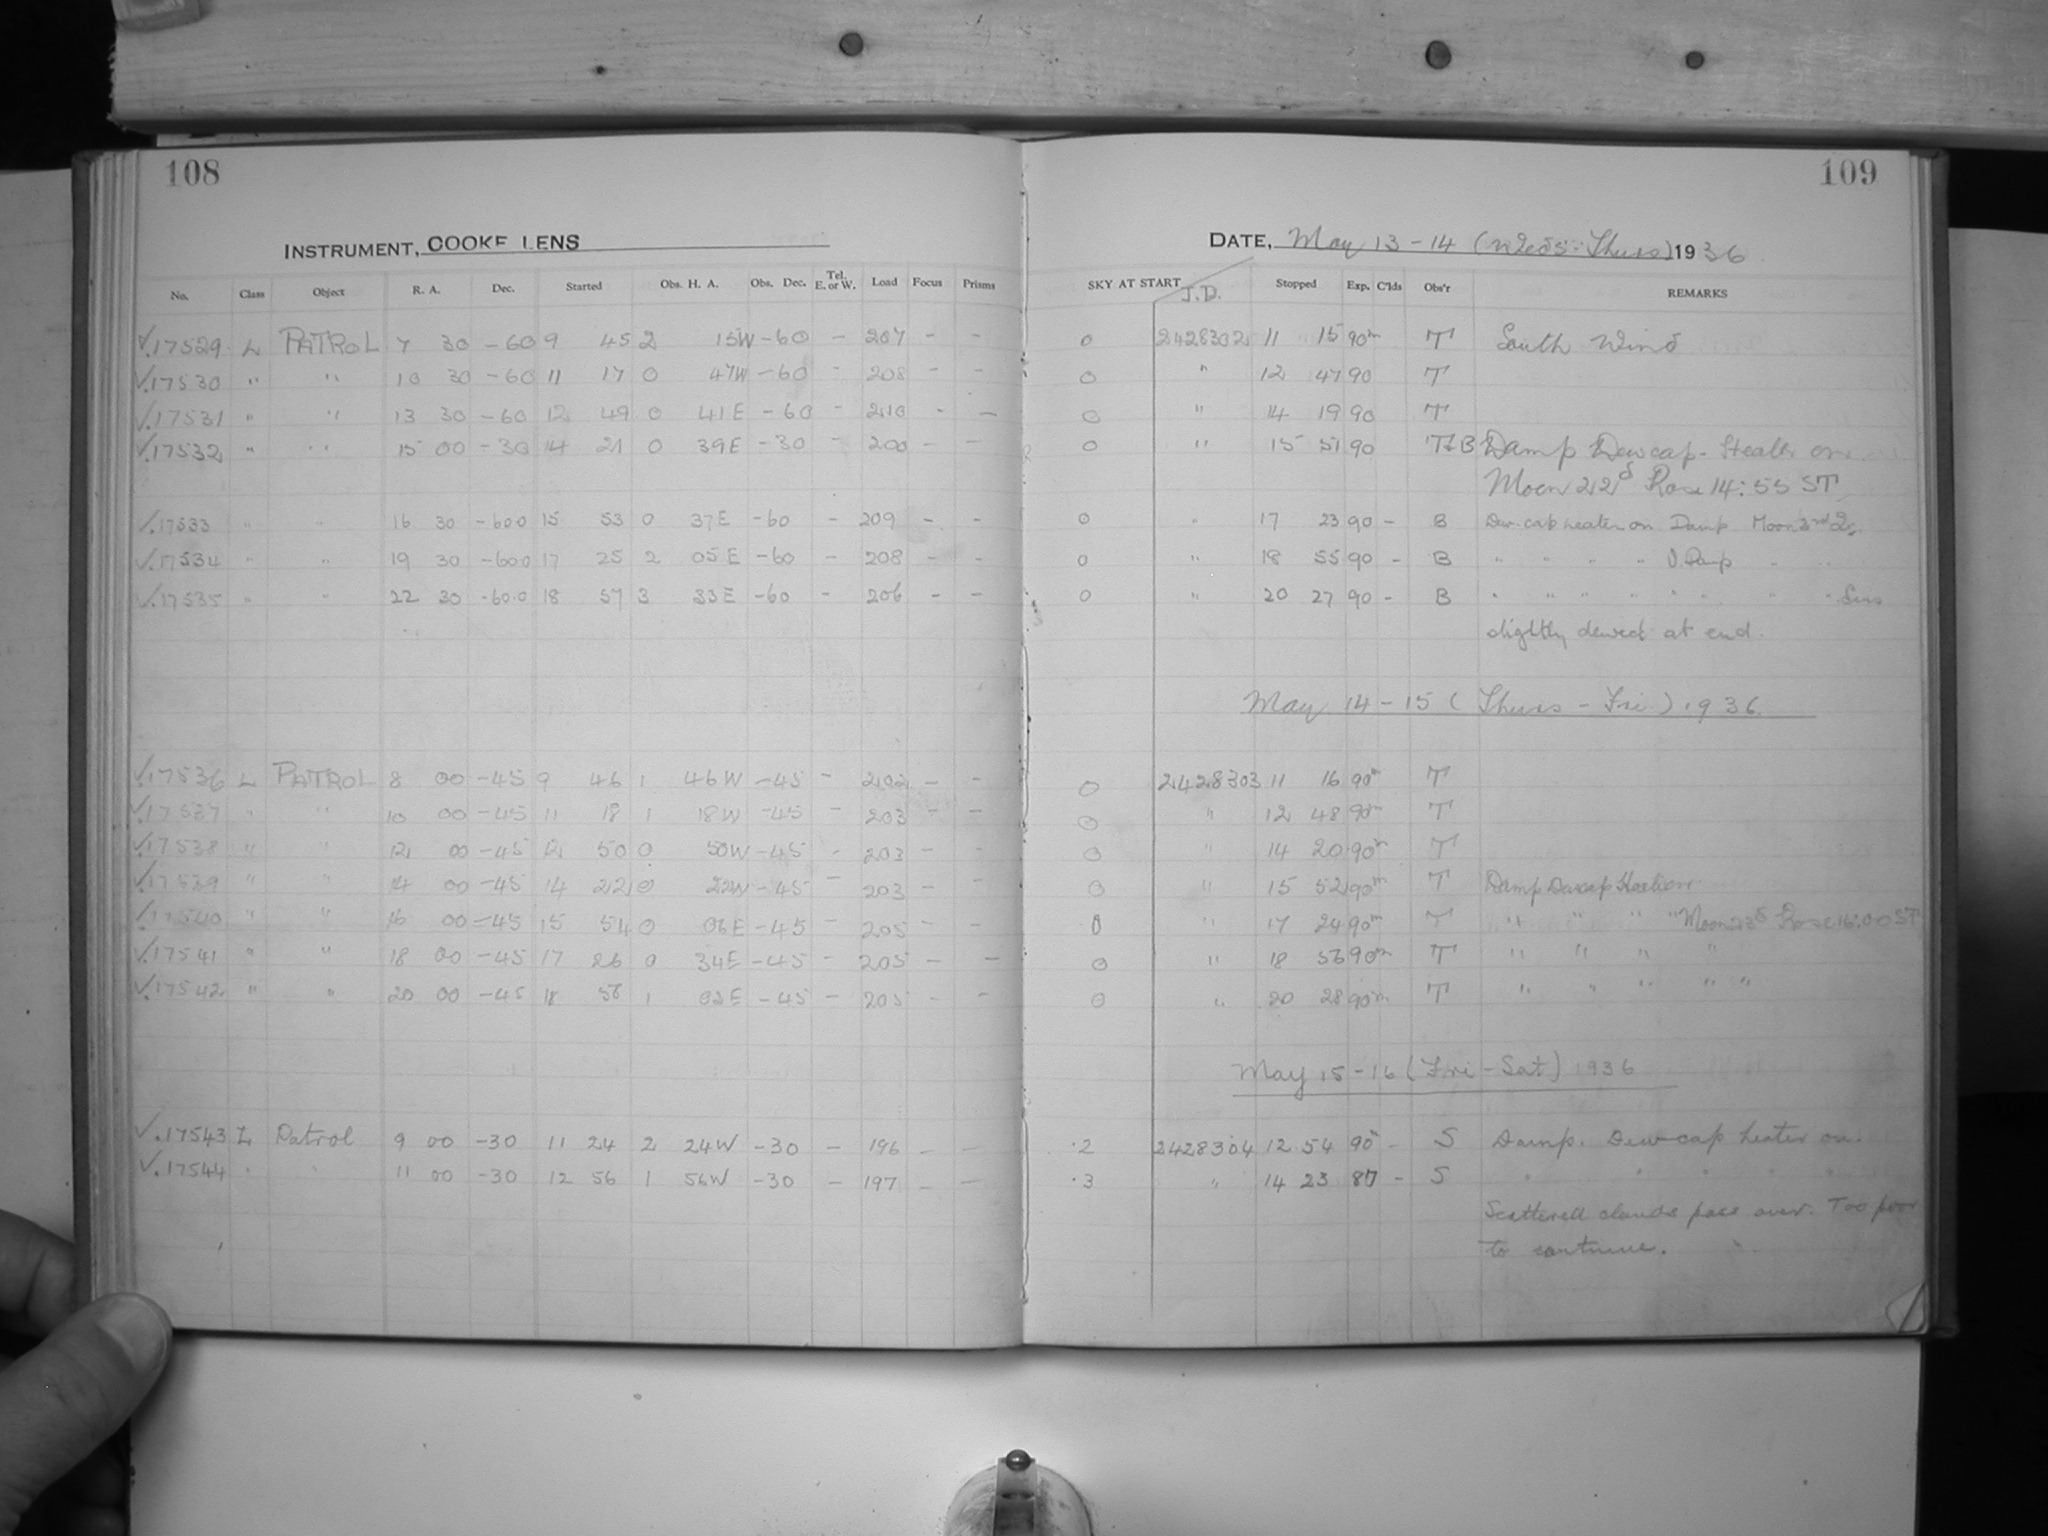 108
109
INSTRUMENT, COOKE LENS
DATE, May 13-14 (Weds-Thurs) 1936
No. Class Object R. A. Dec. Started Obs. H. A. Obs. Dec. Tel. E. or W. Load Focus Prisms SKY AT START J.D. Stopped Exp. C'lds Obs'r REMARKS
√.17529 L PATROL 7 30 -60 9 45 2 15W -60 - 207 - - 0 2428302 11 15 90m T South Wind
√.17530 " " 10 30 -60 11 17 0 47W -60 - 208 - - 0 " 12 47 90 T
√.17531 " " 13 30 -60 12 49 0 41E -60 - 210 - - 0 " 14 19 90 T
√.17532 " " 15 00 -30 14 21 0 39E -30 - 200 - - 0 " 15 51 90 T+B Damp Dewcap-Heater on
Moon 22d Rose 14:55 ST
√.17533 " " 16 30 -600 15 53 0 37E -60 - 209 - - 0 " 17 23 90 - B Dew-cap heater on Damp Moon 3rd Q.
√.17534 " " 19 30 -600 17 25 2 05E -60 - 208 - - 0 " 18 55 90 - B " " " " V. Damp " "
√.17535 " " 22 30 -60.0 18 57 3 33E -60 - 206 - - 0 " 20 27 90 - B " " " " " " " " Lens
slightly dewed at end.
May 14-15 (Thurs-Fri) 1936
√.17536 L PATROL 8 00 -45 9 46 1 46W -45 - 202 - - 0 2428303 11 16 90m T
√.17537 " " 10 00 -45 11 18 1 18W -45 203 - - 0 " 12 48 90m T
√.17538 " " 12 00 -45 12 50 0 50W -45 - 203 - - 0 " 14 20 90m T
√.17539 " " 14 00 -45 14 22 0 22W -45 - 203 - - 0 " 15 52 90m T Damp Dewcap Heater on
√.17540 " " 16 00 -45 15 54 0 06E -45 - 205 - - 0 " 17 24 90m T " " " " Moon 23d Rose 16:00 ST
√.17541 " " 18 00 -45 17 26 0 34E -45 - 205 - - 0 " 18 56 90m T " " " "
√.17542 " " 20 00 -45 18 58 1 02E -45 - 205 - - 0 " 20 28 90m T " " " " "
May 15-16 (Fri-Sat) 1936
√.17543 L Patrol 9 00 -30 11 24 2 24W -30 - 196 - - .2 2428304 12 54 90m - S Damp. Dew-cap heater on.
√.17544 " " 11 00 -30 12 56 1 56W -30 - 197 - - .3 " 14 23 87 - S " " " " "
Scattered clouds pass over. Too poor
to continue.